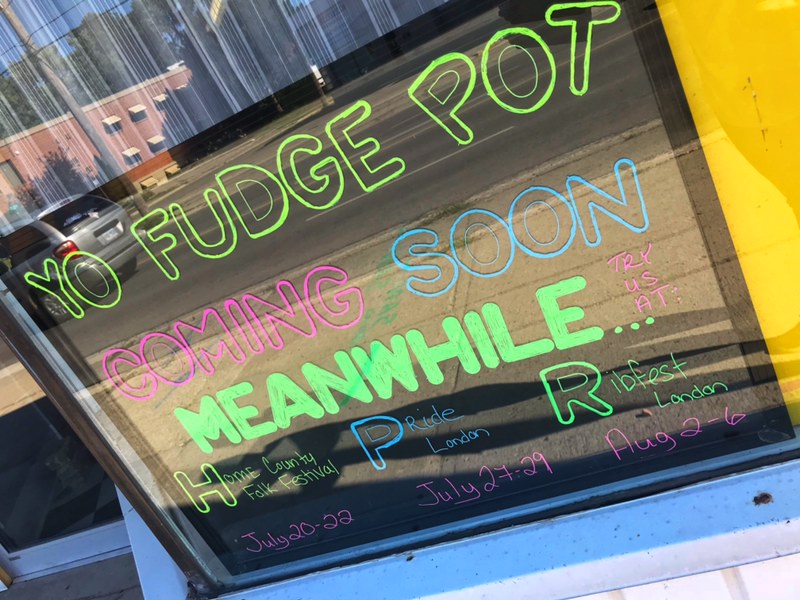 YO FUDGE POT
COMING SOON
MEANWHILE...
TRY
US
AT:
Home County
Folk Festival
July 20-22
Pride
London
July 27-29
Ribfest
London
Aug 2-6